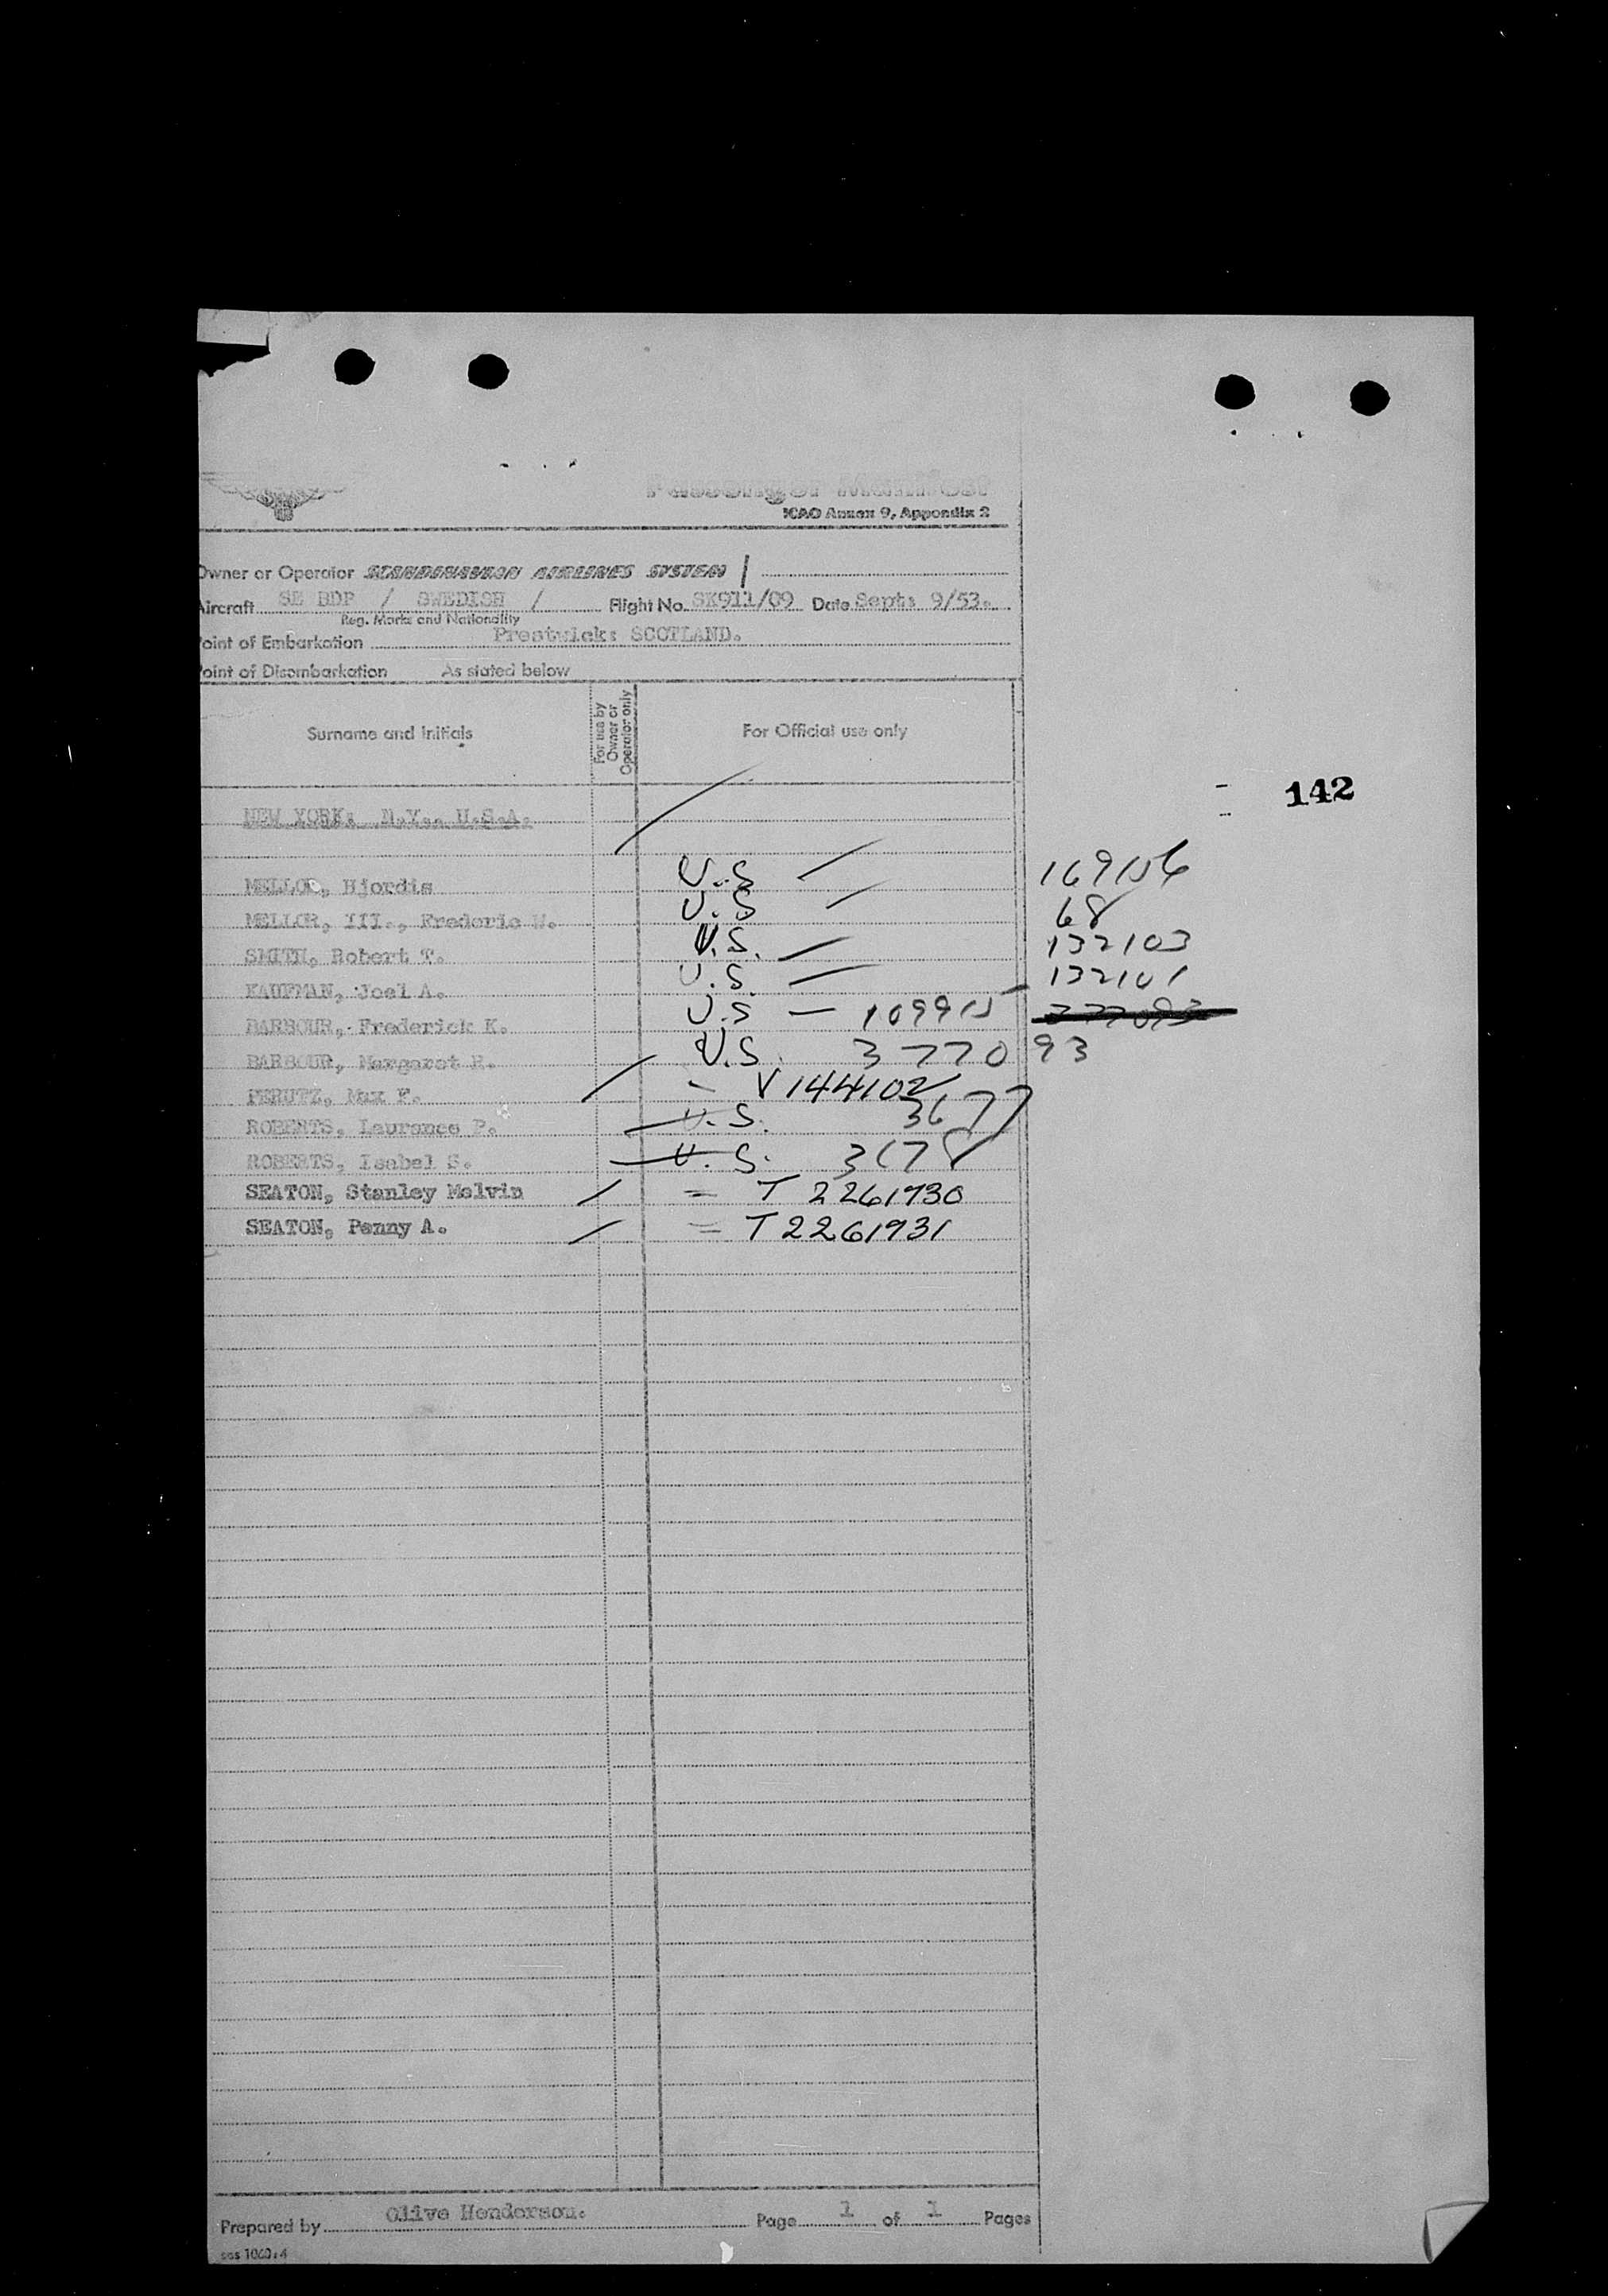 Passenger Manifest
ICAO Annex 9, Appendix 2
Owner or Operator SCANDINAVIAN AIRLINES SYSTEM
Aircraft SE BDP / SWEDISH / Flight No. SK911/09 Date Sept: 9/53.
Reg. Marks and Nationality
Point of Embarkation Prestwick: SCOTLAND.
Point of Disembarkation As stated below
Surname and Initials For use by Owner or Operator only For Official use only
142
NEW YORK: N.Y., U.S.A.
MELLOR, Hjordis U.S
MELLOR, III., Frederic W. U.S 68
SMITH, Robert T. U.S. 132103
KAUFMAN, Joel A. U.S. 132101
BARBOUR, Frederick K. U.S — 377093
BARBOUR, Margaret R. U.S. 377093
PERUTZ, Max F. - V144102
ROBERTS, Laurance P. U.S. 3677
ROBERTS, Isabel S. U.S. 3678
SEATON, Stanley Melvin = T 2261930
SEATON, Penny A. = T2261931
Prepared by Olive Henderson. Page 1 of 1 Pages
sas 1060:4